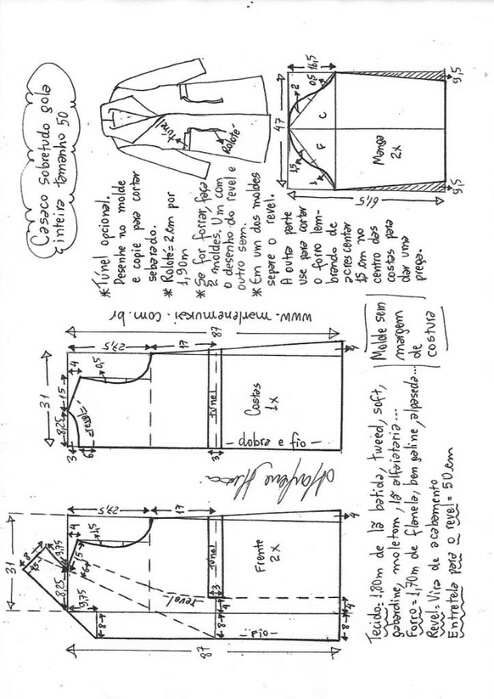 Casaco sobretudo gola
inteira tamanho 50
*Túnel opcional.
Desenhe no molde
e copie para cortar
sebarado.
*Rolotê=2cm por
1,90m
*Se for forrar, faça
2 moldes. Um com
o desenho do revel e
outro sem.
*Em um dos moldes
separe o revel.
A outra parte
use para cortar
o forro lem-
brando de
acrescentar
15 cm no
centro das
costas para
dar uma
prega.
túnel
Rolotê
47
16,5
0,5
2
1,5
1
F
C
Manga
2x
61,5
9,5
9,5
www.marlenemukai.com.br
31
8,25
15
4
0,5
27,5
17
87
3
6
revel
Costas
1x
túnel
dobra
fio
3
Marlene Mukai
31
8
9,75
15
4
4,5
27,5
17
8,25
9,75
8
revel
Frente
2x
túnel
3
4
fio
8
8
4
87
Molde sem
margem
de
costura
Tecido=1,80m de lã batida, tweed, soft,
gabardine, moletom, lã alfaiataria...
Forro=1,70m de flanela, bengaline, alpaseda...
Revel=Vira de acabamento
Entretela para o revel=50cm